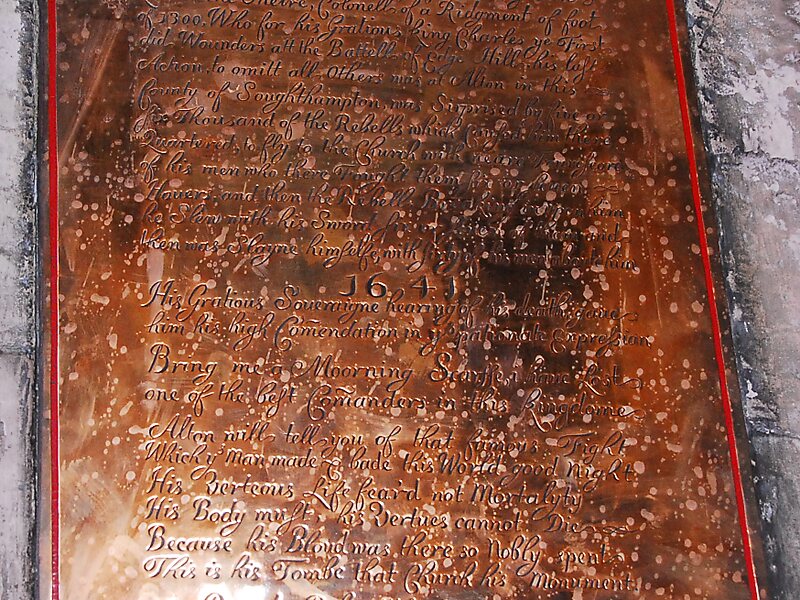 Colonell of a Ridgment of foot
of 1300. Who for his Gratious King Charles ye First
did Wounders att the Battell of Edge Hill; his last
Action, to omitt all Others was at Alton in this
County of Soughthampton, was Surprised by five or
six Thousand of the Rebells which caused him there
Quartered to fly to the Church with neare
of his men who there Fought them six or Seven
Howers, and then the Rebells
he Slew with his Sword six or and
then was Slayne himselfe, with sixty of his men aboute him
1641
His Gratious Soveraigne hearing of his death, gave
him his high Comendation in ys pationate Expression
Bring me a Moorning Scarffe, i have Lost
one of the best Comanders in this Kingdome
Alton will tell you of that famous Fight
Which ys Man made & bade this World good Night
His Verteous Life fear'd not Mortalyty
His Body must, his Vertues cannot Die
Because his Bloud was there so Nobly spent
This is his Tombe that Church his Monument